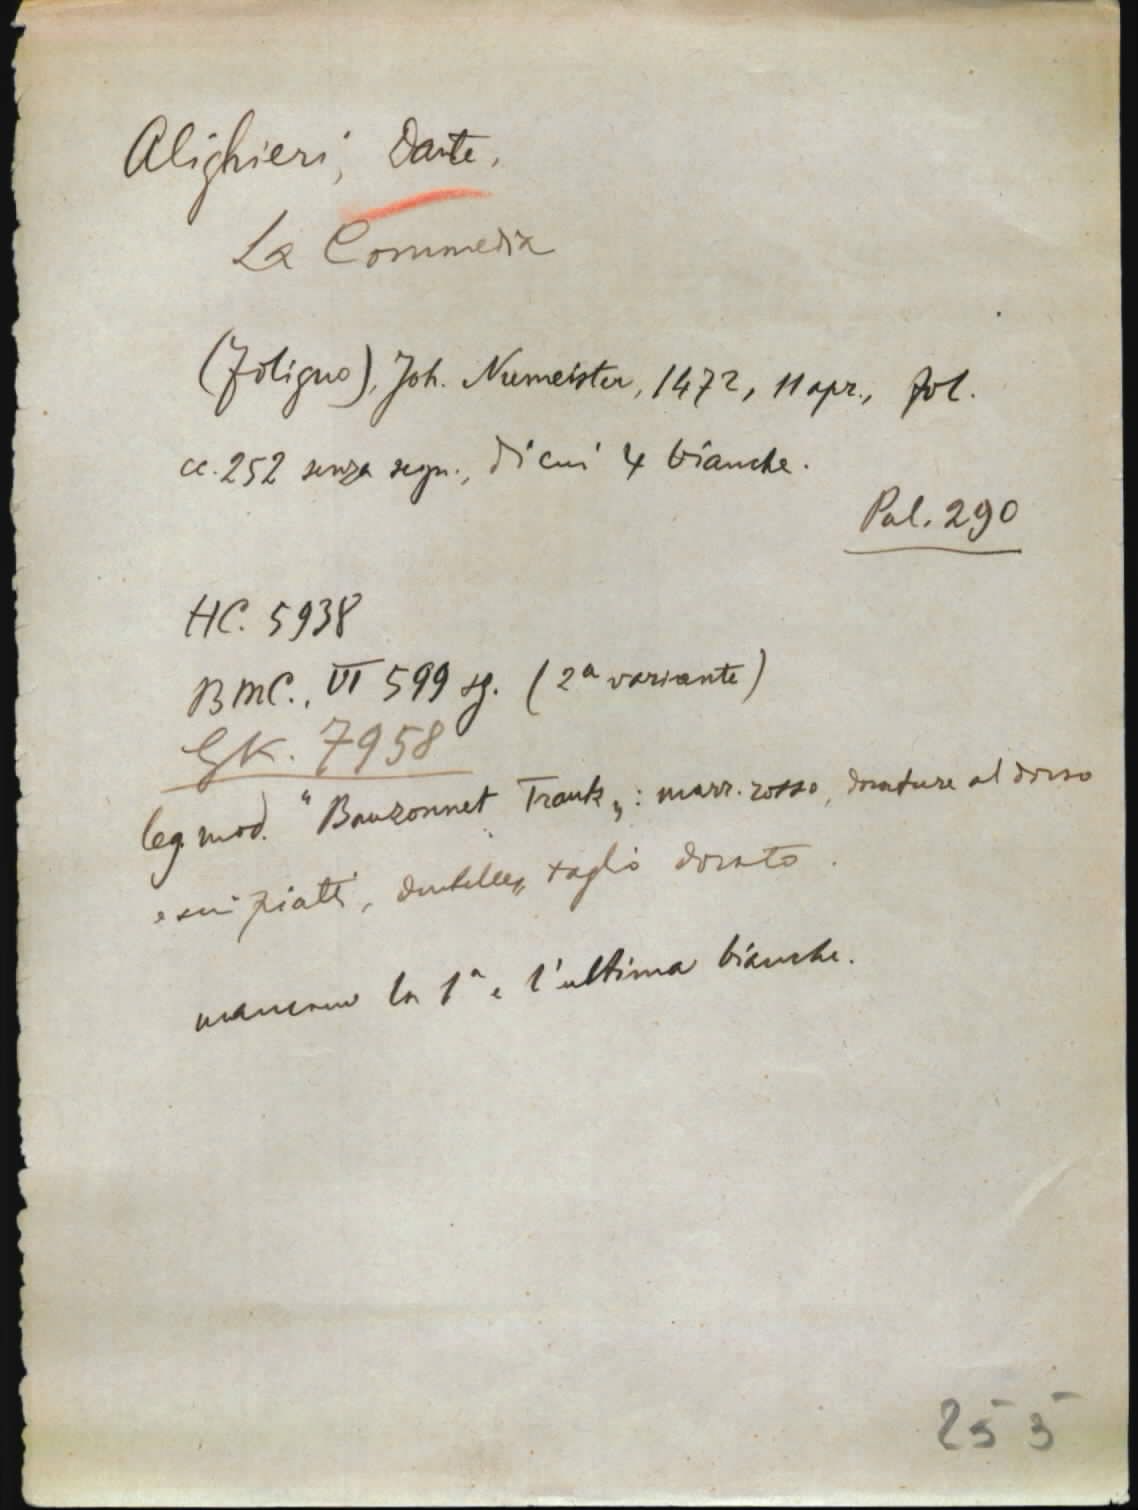 Alighieri, Dante.
La Commedia
(Foligno), Joh. Numeister, 1472, 11 apr., fol.
cc. 252 senza segn., di cui 4 bianche.
Pal. 290
HC. 5938
BMC., VI 599 sg. (2ª variante)
GK. 7958
leg. mod. "Bauzonnet Trautz„: marr. rosso, dorature al dorso
e sui piatti, dentelles, taglio dorato.
mancano la 1ª e l'ultima bianche.
255